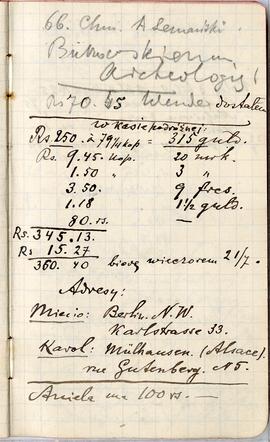 66. Chm. A Lemański.
Bukowskiemu
Archeologij
Rs 70. 45 Wende dostałem
w kasie podróżnej:
Rs 250. à 79 kop = 315 guld.
Rs. 9. 45 kop. 20 mrk.
1. 50 " 3 "
3. 50. 9 frcs.
1. 18 1½ guld.
80. rs. —
Rs. 345. 13.
Rs 15. 27
360. 40 biorę wieczorem 21/7.
Adresy:
Miecio: Berlin. N. W.
Karlstrasse 33.
Karol: Mülhausen. (Alsace).
rue Gutenberg. № 5.
Aniela ma 100 rs. —